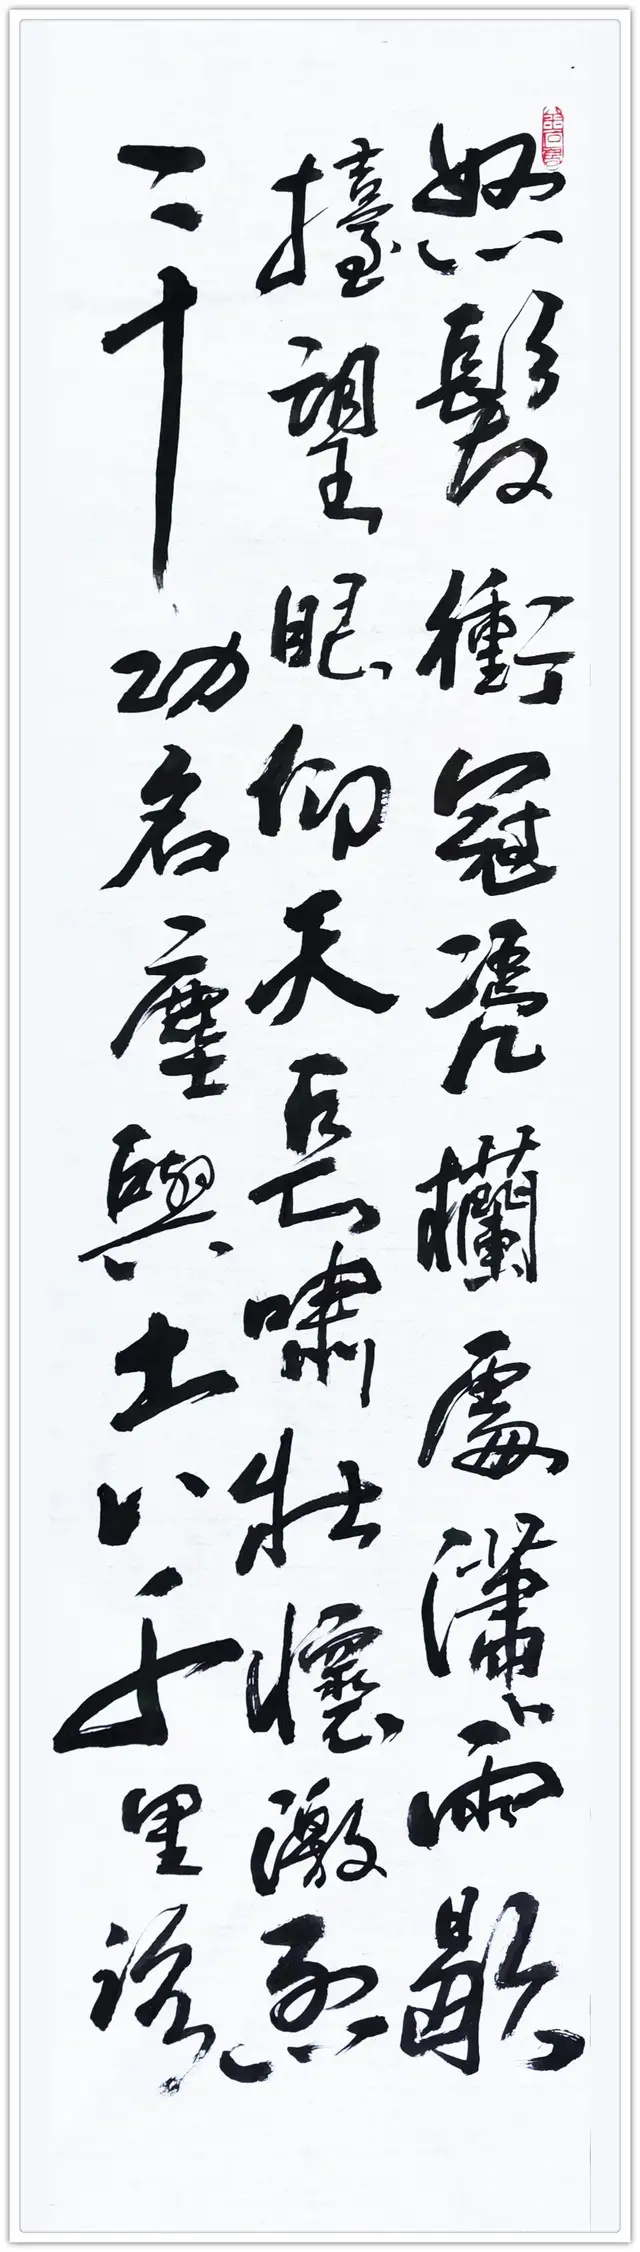 怒髮衝冠憑欄處瀟雨歇
擡望眼仰天長嘯壯懷激烈
三十功名塵與土八千里路